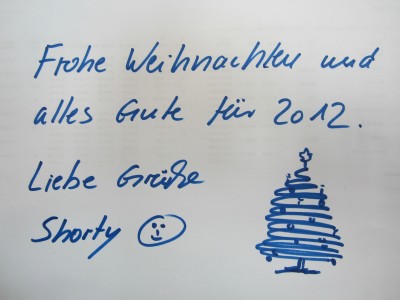 Frohe Weihnachten und
alles Gute für 2012.
Liebe Grüße
Shorty